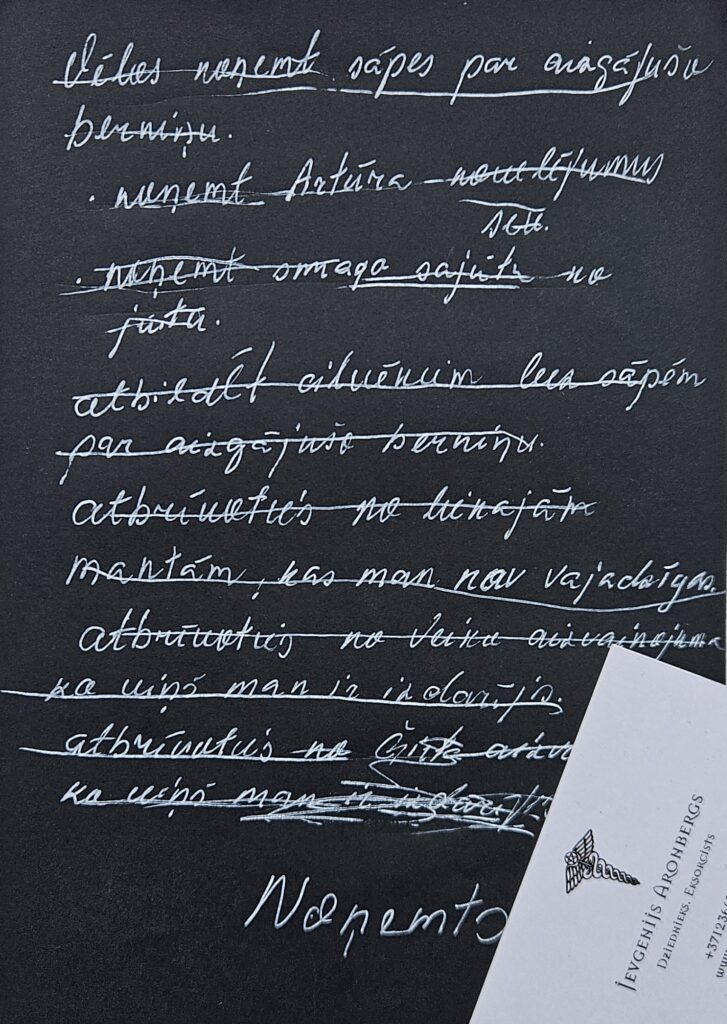 Vēlos noņemt sāpes par aizgājušo
berniņu.
· noņemt Artūra novēlējumus
sev.
· noņemt smaga sajūta no
jūtu.
atbildēt cilvēkiem bez sāpēm
par aizgājušo berniņu.
atbrīvoties no liekajām
mantām, kas man nav vajadzīgas.
atbrīvoties no Veiku aizvainojuma
ko viņš man ir izdarījis.
atbrīvoties no
ko viņš man ir izdarījis
Noņemts
JEVGENIJS ARONBERGS
DZIEDNIEKS, EKSORCISTS
+3712366
www